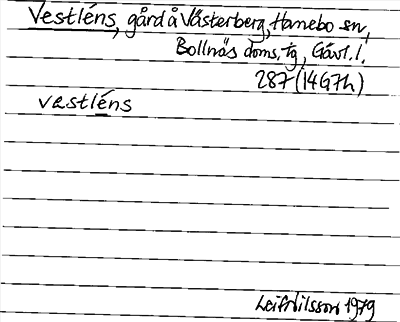 Vestléns, gård å Västerberg, Hanebo sn,
Bollnäs doms. tg, Gävl. l.
287 (14G7h)
vestléns
Leif Nilsson 1979